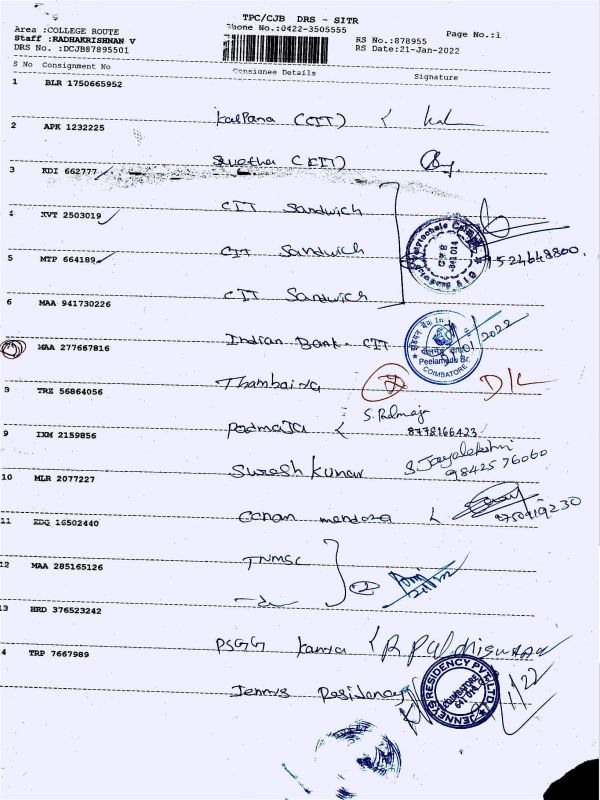 TPC/CJB DRS - SITR
Area :COLLEGE ROUTE
Phone No.:0422-3505555
Page No.:1
Staff :RADHAKRISHNAN V
RS No.:878955
DRS No. :DCJB87895501
RS Date:21-Jan-2022
S No Consignment No
Consignee Details
Signature
1 BLR 1750665952
Kalpana (CIT)
2 APK 1232225
Swetha (CIT)
3 KDI 662777
CIT Sandwich
4 XVT 2503019
CIT Sandwich
5 MTP 664189
9524648800.
CIT Sandwich
6 MAA 941730226
Indian Bank - CIT
Peelamedu Br.
COIMBATORE
MAA 277667816
D/L
8 TRZ 56864056
Padmaja
8778166423
9 IXM 2159856
Suresh kumar
S. Jayalekshmi
9842576060
10 MLR 2077227
9750919230
11 EDQ 16502440
TNMSC
12 MAA 285165126
13 HRD 376523242
PSGG
4 TRP 7667989
Jennys Residency
JENNEYS RESIDENCY PVT. LTD
COIMBATORE